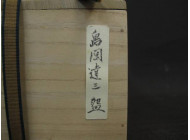 島岡達三 盌